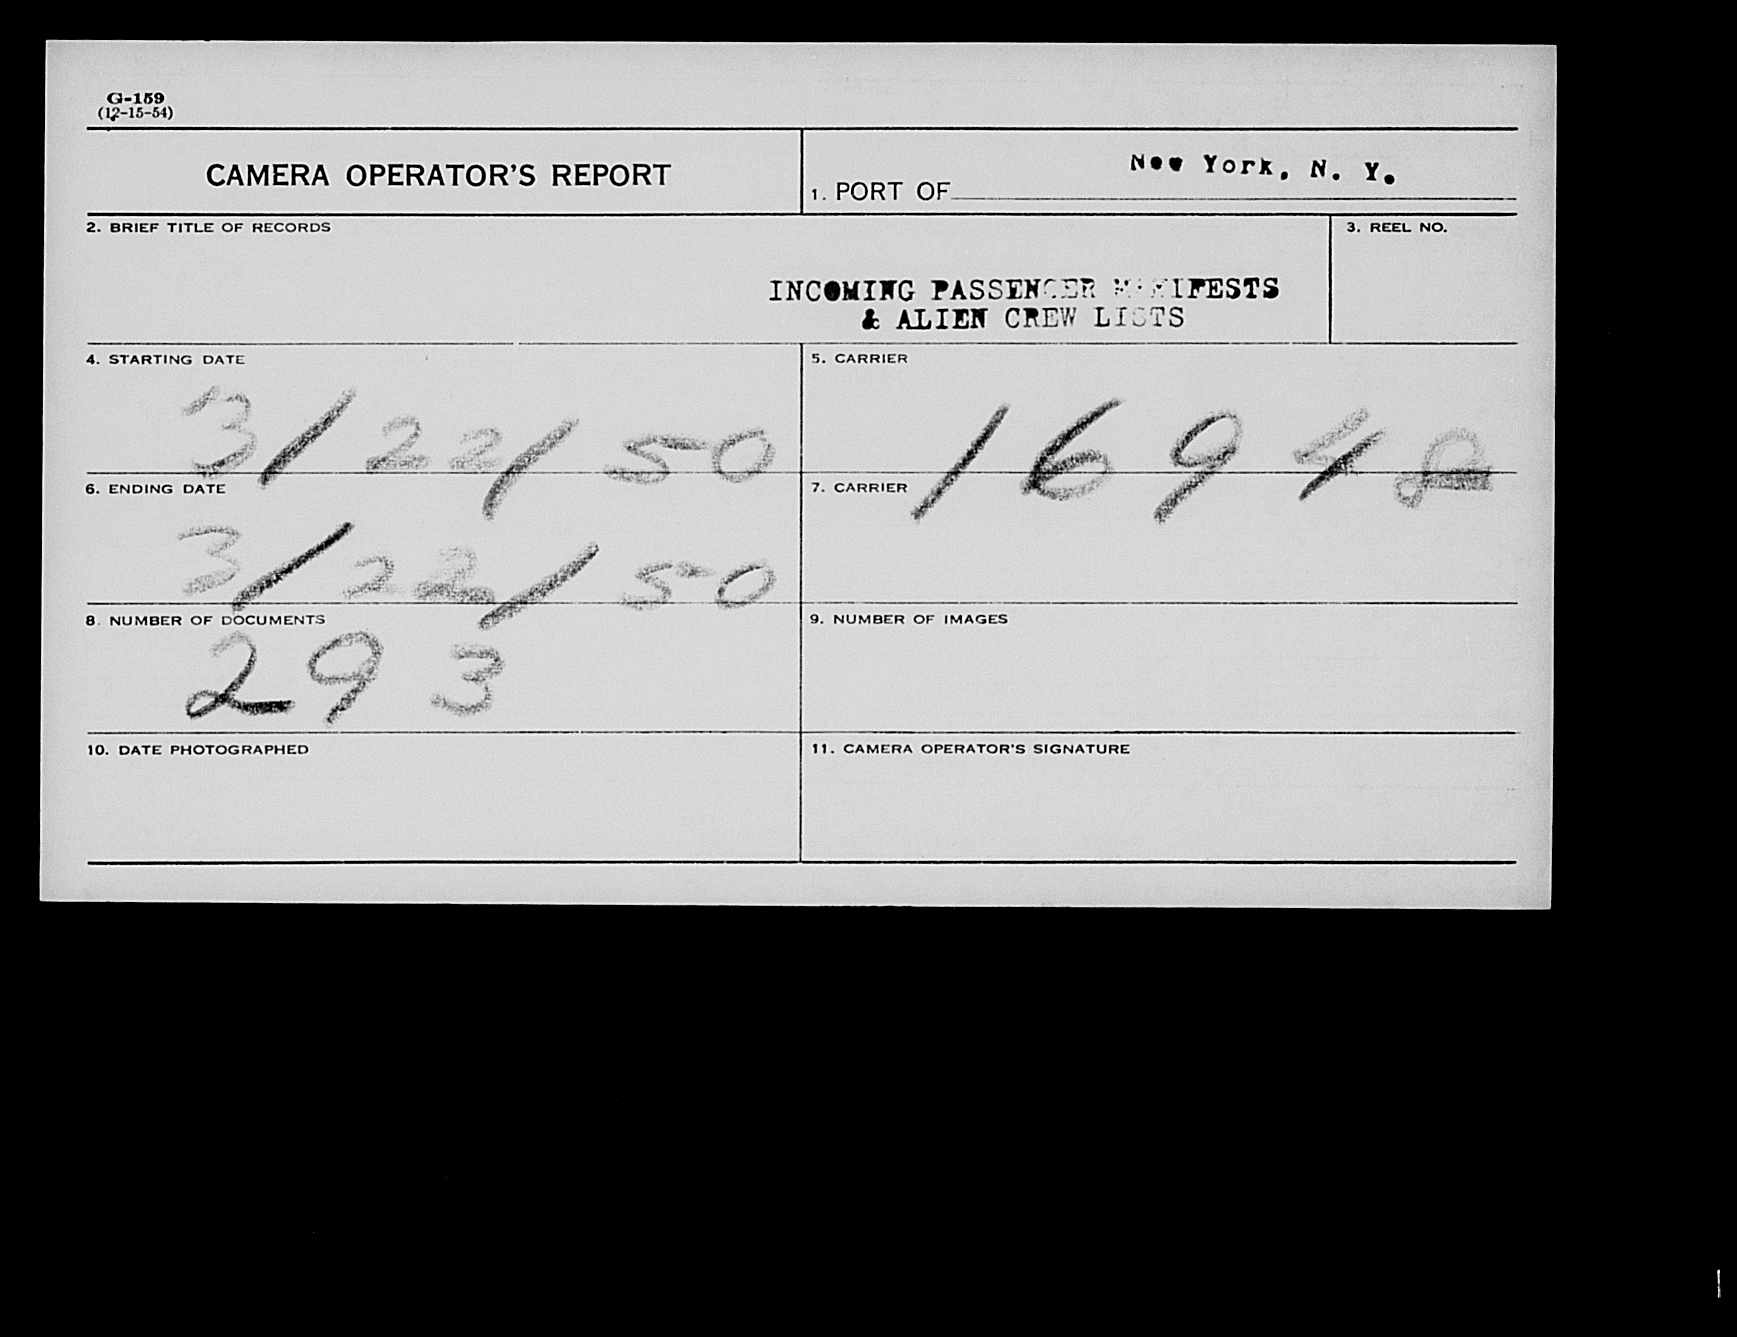 G-159
(12-15-54)
CAMERA OPERATOR'S REPORT
1. PORT OF New York, N. Y.
2. BRIEF TITLE OF RECORDS
3. REEL NO.
INCOMING PASSENGER MANIFESTS
& ALIEN CREW LISTS
4. STARTING DATE
3/22/50
5. CARRIER
6. ENDING DATE
3/22/50
7. CARRIER
8. NUMBER OF DOCUMENTS
293
9. NUMBER OF IMAGES
10. DATE PHOTOGRAPHED
11. CAMERA OPERATOR'S SIGNATURE